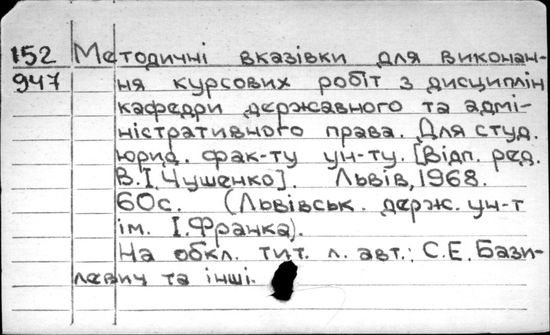 152 Методичні вказівки для виконан-
947 ня курсових робіт з дисциплін
кафедри державного та адмі-
ністративного права. Для студ.
юрид. фак-ту ун-ту. [Відп. ред.
В.І. Чушенко]. Львів, 1968.
60с. (Львівськ. держ. ун-т
ім. І. Франка).
На обкл. тит. л. авт.: С.Е. Бази-
левич та інші.